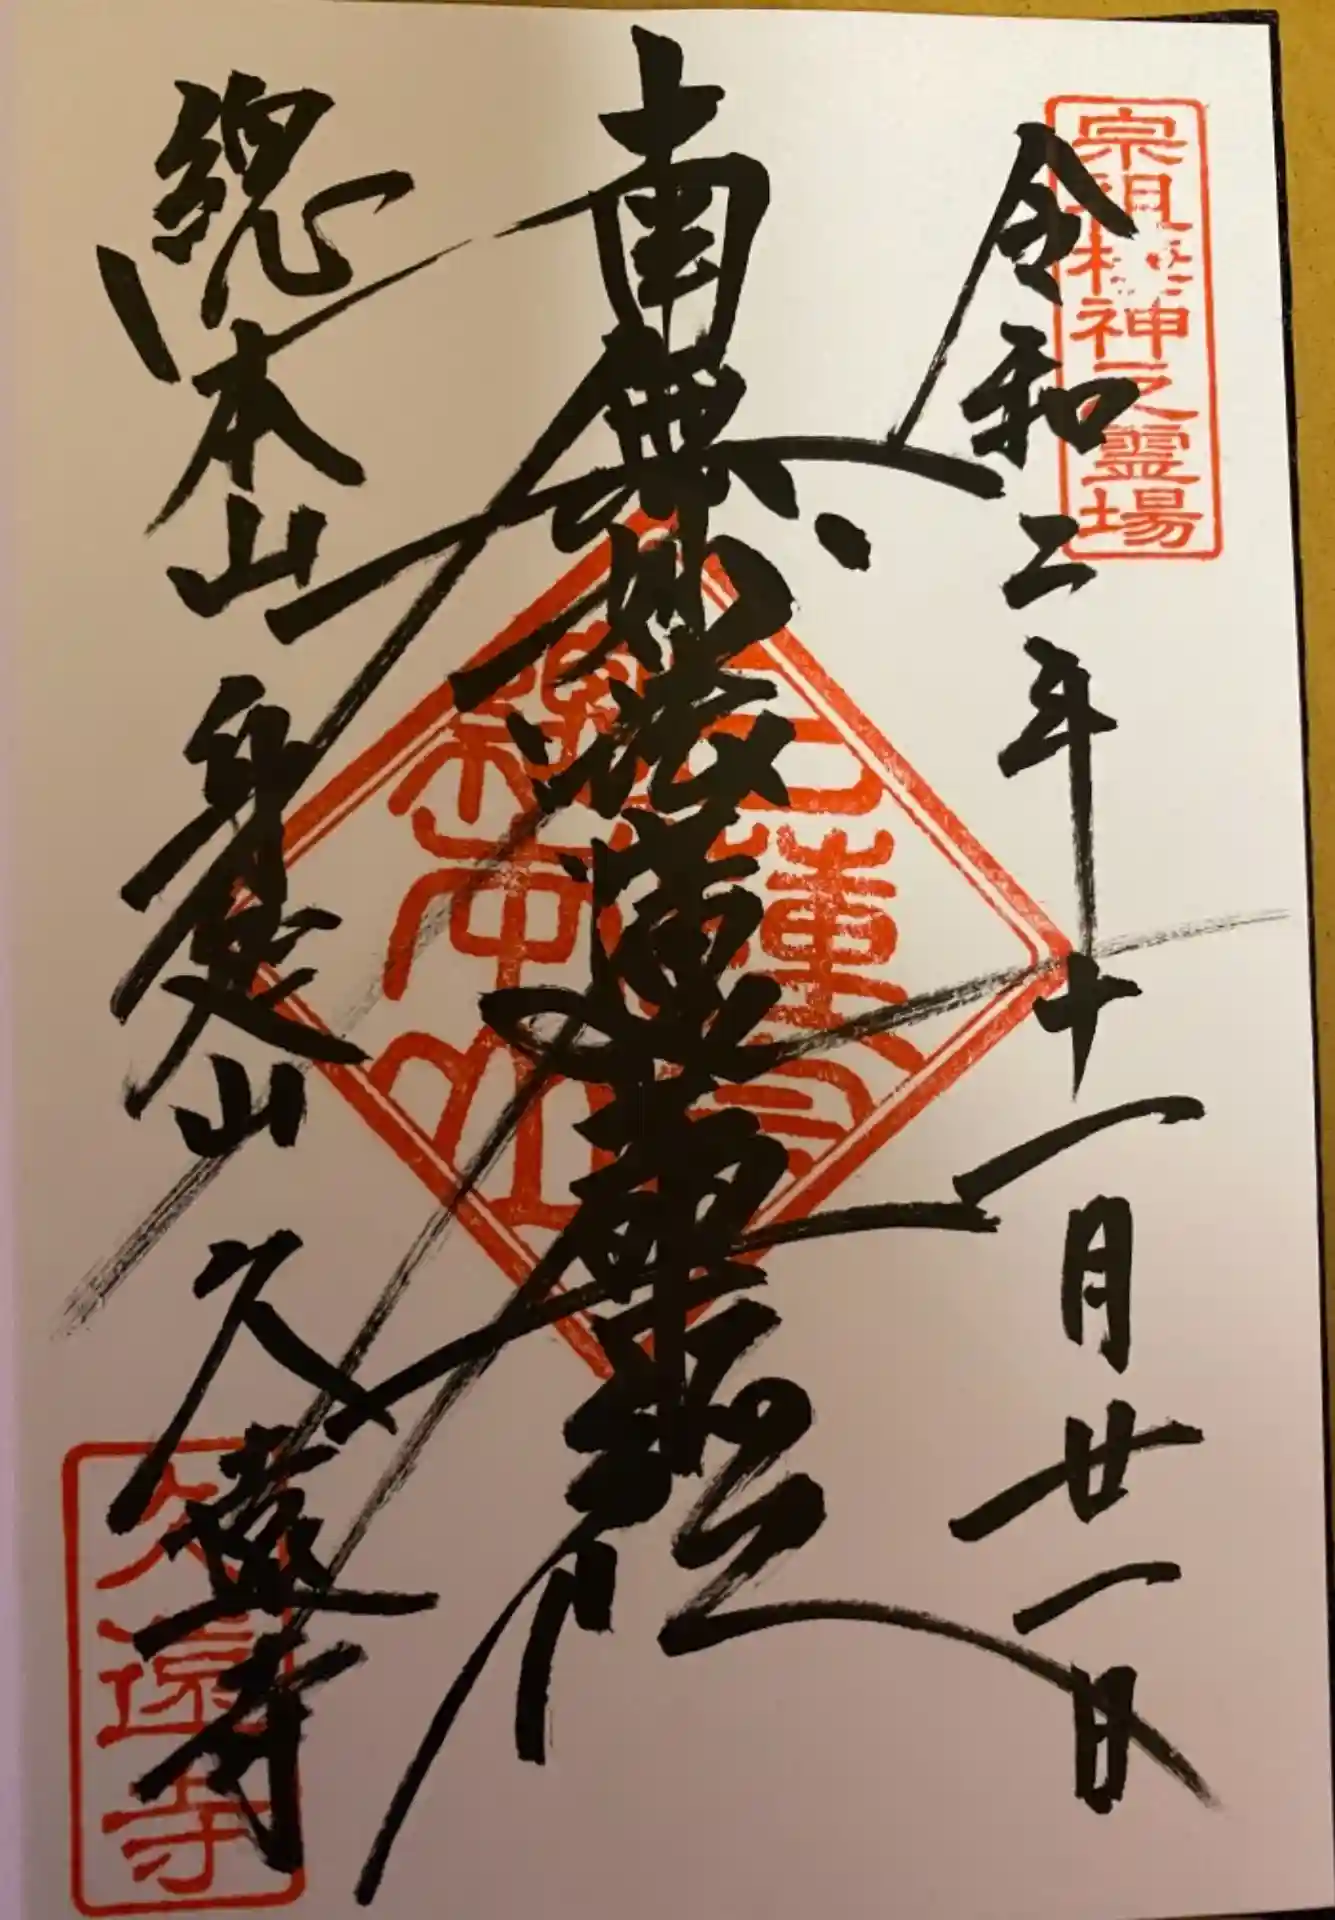 宗祖棲神之霊場
令和二年十一月廿一日
南無妙法蓮華経
日蓮宗
総本山
總本山 身延山 久遠寺
久遠寺